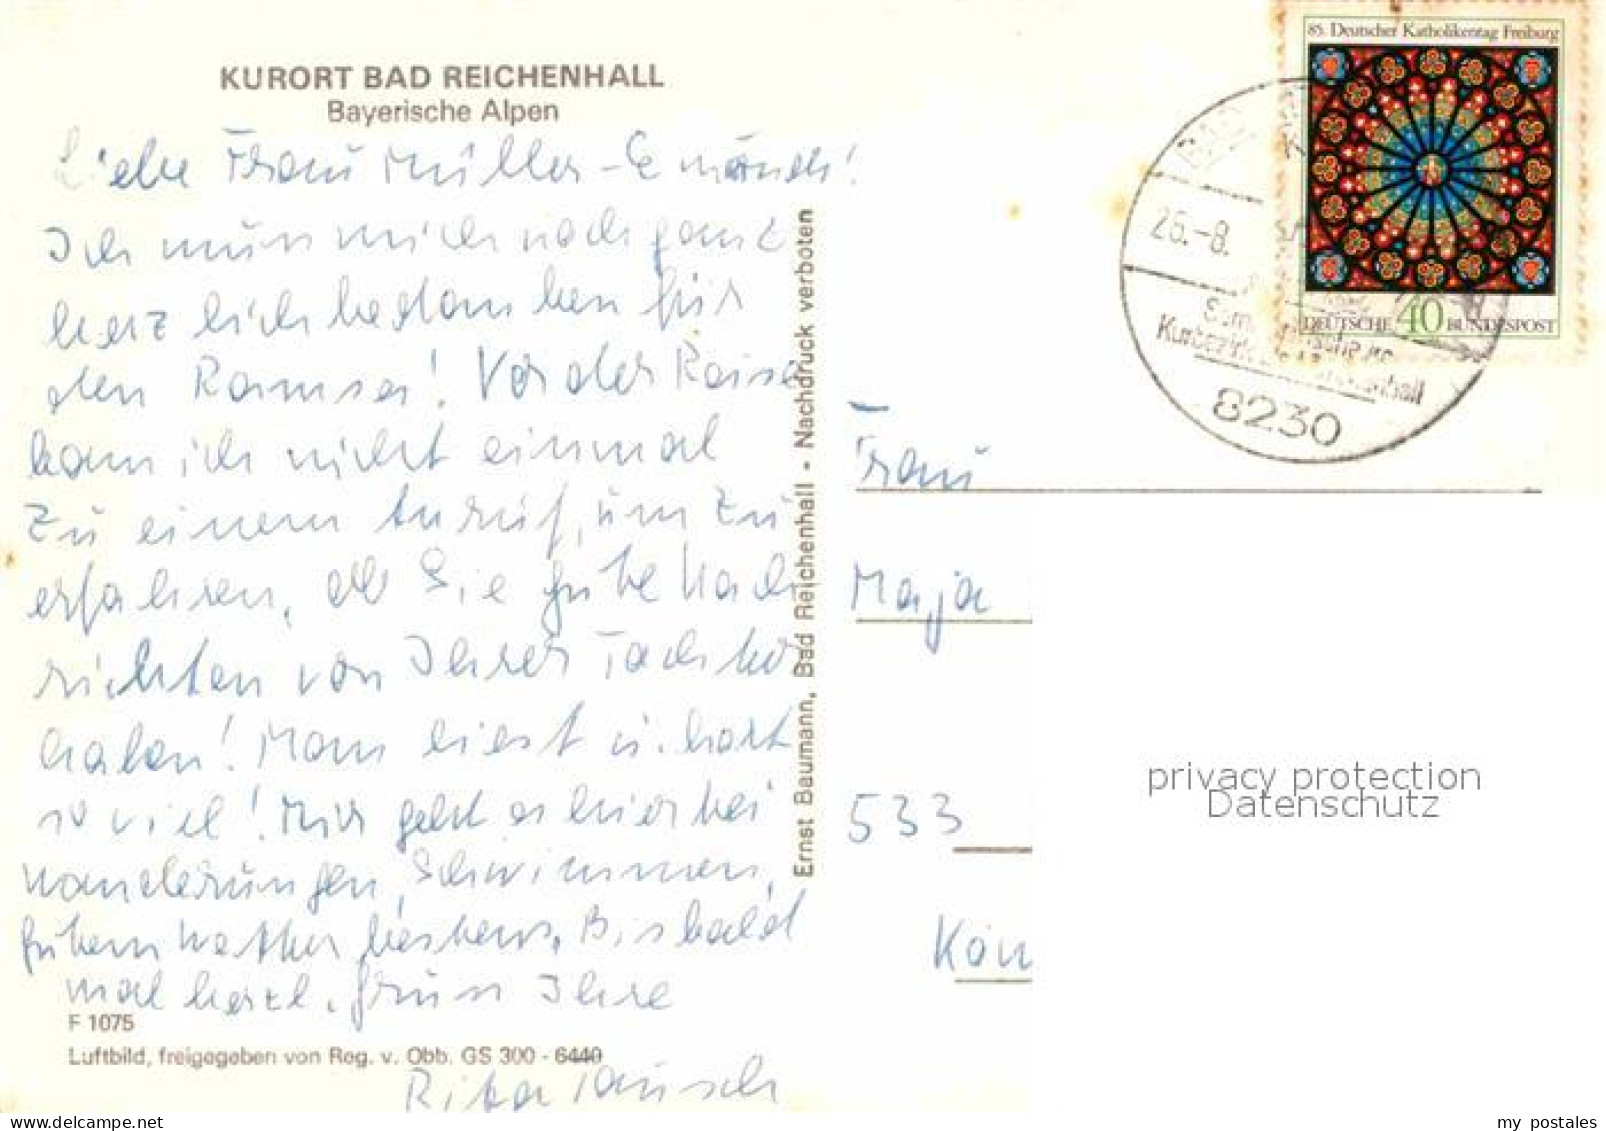 KURORT BAD REICHENHALL
Bayerische Alpen
Liebe Frau Müller-
Ich muss mich noch ganz
herzlich bedanken für
den Ramses! Vor der Reise
kam ich nicht einmal
zu einem Anruf, um zu
erfahren, ob Sie gute Nach
richten von Ihrer Tochter
haben! Man liest u. hört
so viel! Mir geht es hier bei
Wanderungen, Schwimmen,
gutem Wetter bestens. Bis bald
mal herzl. Gruss Ihre
Rita Tausch
F 1075
Luftbild, freigegeben von Reg. v. Obb. GS 300 - 6440
Ernst Baumann, Bad Reichenhall - Nachdruck verboten
85. Deutscher Katholikentag Freiburg
DEUTSCHE 40 BUNDESPOST
25.-8.
8230
Frau
Maja
533
Kön
privacy protection
Datenschutz
my postales